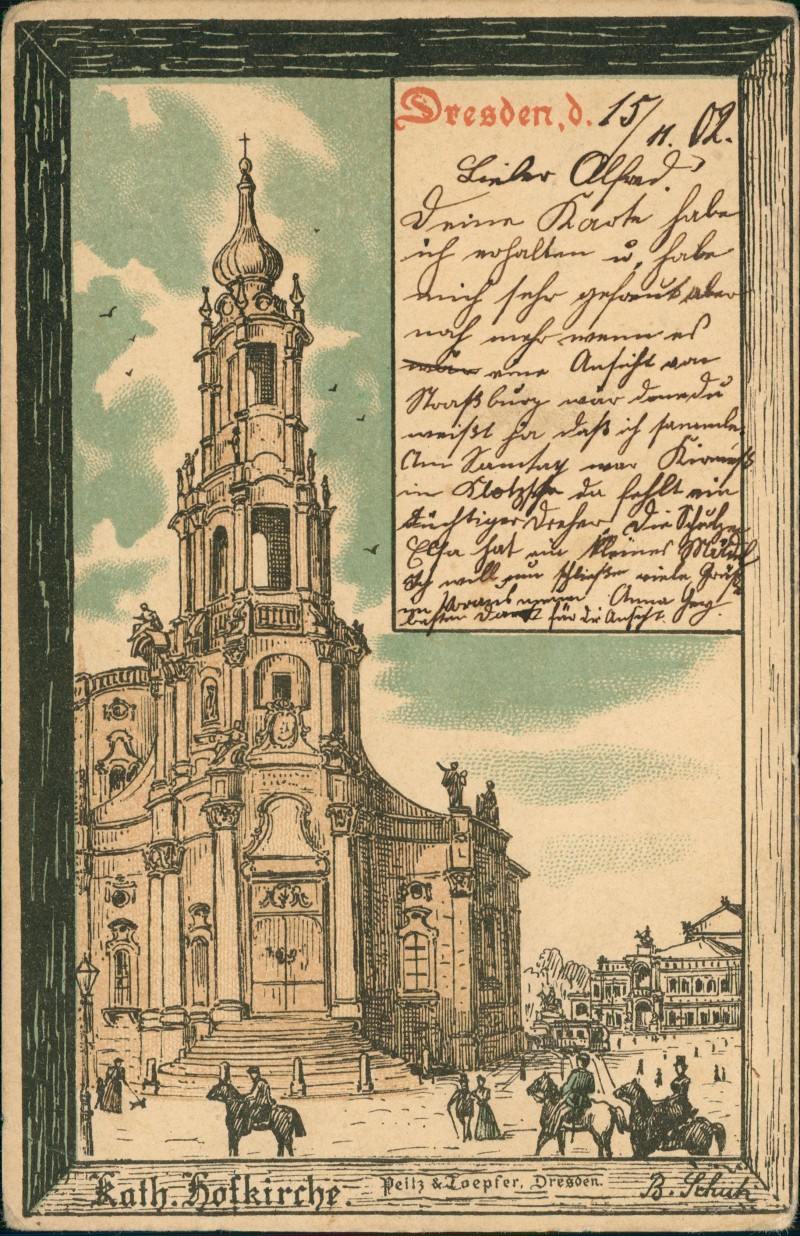 Dresden, d. 15/11. 02.
Lieber Alfred!
Deine Karte habe
ich erhalten u. habe
mich sehr gefreut aber
noch mehr wenn es
eine Ansicht von
Straßburg wär denn du
weißt ja daß ich sammle.
Am Samstag war Kirmeß
in Klotzsche da fehlt ein
tüchtiger Dreher. Die Schulze
Elsa hat ein kleines Mädel
Ich will nun schließen viele Grüße
im Voraus Anna
besten Dank für die Ansicht.
Kath. Hofkirche.
Peitz & Toepfer, Dresden.
B. Schutz